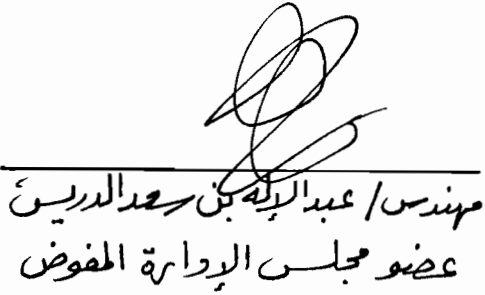 مهندس/ عبدالإله بن سعد الدريس
عضو مجلس الإدارة المفوض